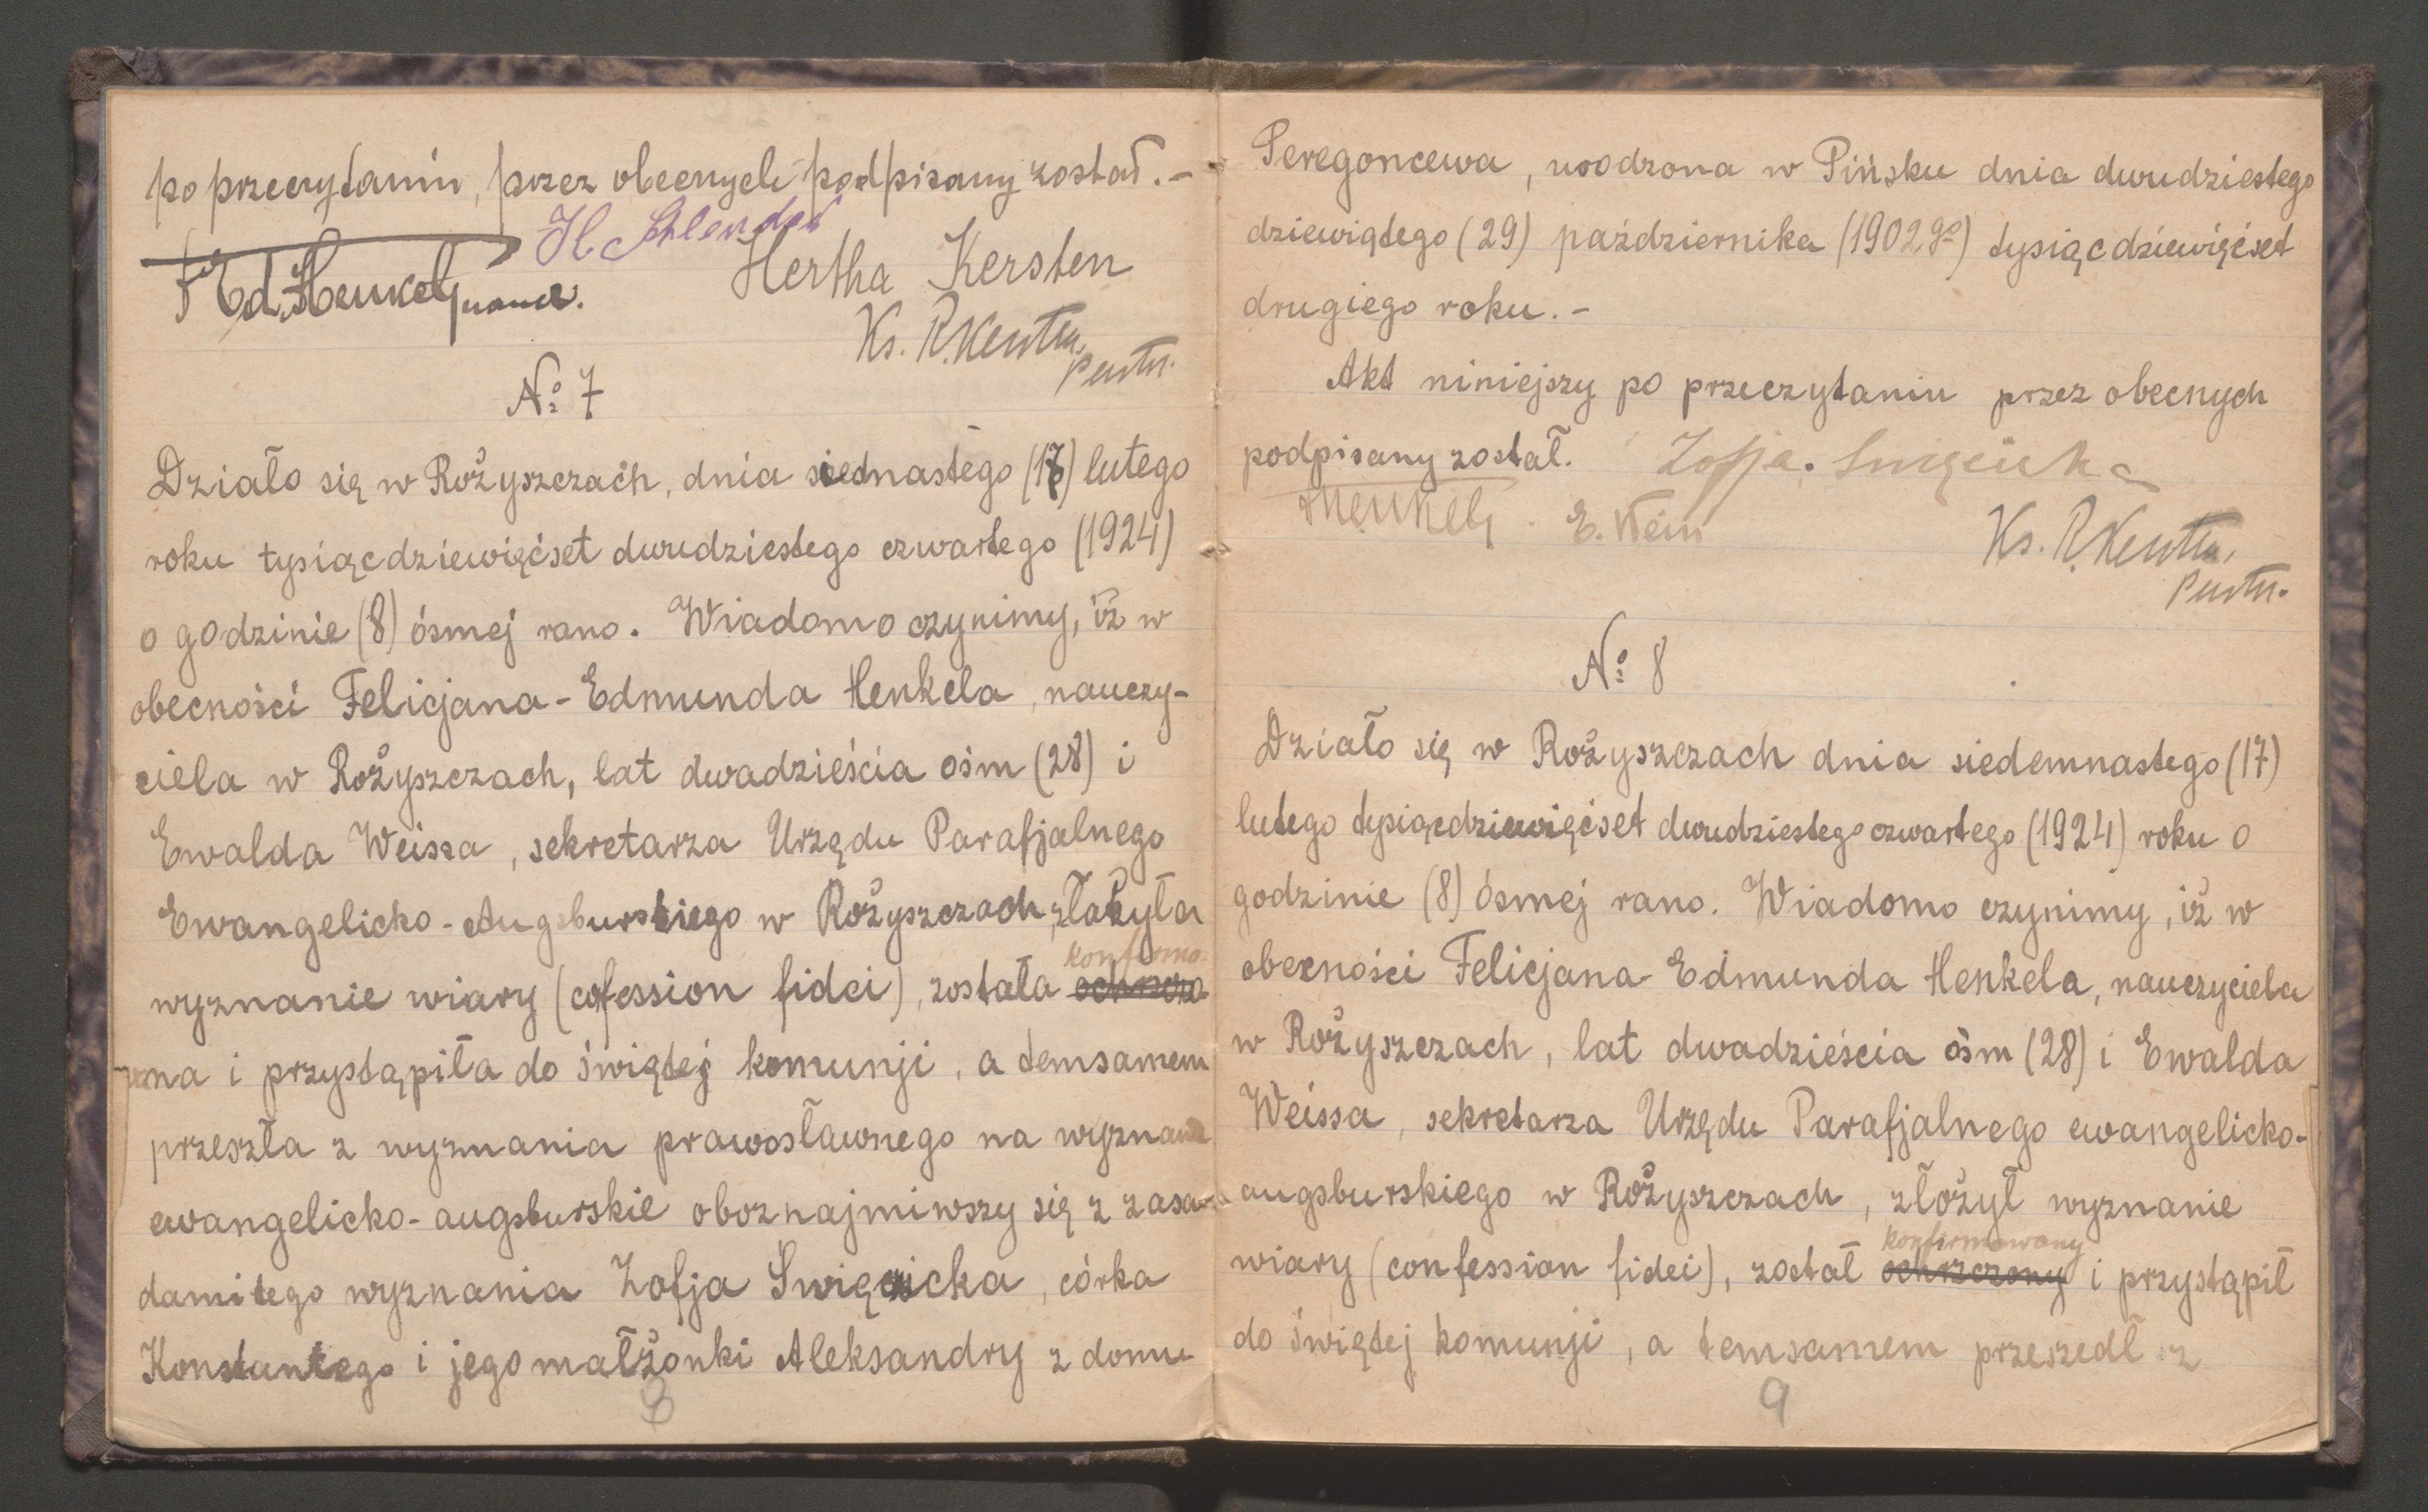 po przeczytaniu, przez obecnych podpisany został.-
H. Schlendor
F Ed. Henkel
Hertha Kersten
Ks. R. Kersten
Pastor.
№ 7
Działo się w Rożyszczach, dnia siednastego (17) lutego
roku tysiącdziewięćset dwudziestego czwartego (1924)
o godzinie (8) ósmej rano. Wiadomo czynimy, iż w
obecności Felicjana-Edmunda Henkela, nauczy-
ciela w Rożyszczach, lat dwadzieścia ośm (28) i
Ewalda Weissa, sekretarza Urzędu Parafjalnego
Ewangelicko-Augsburskiego w Rożyszczach, złożyła
konfirmo-
wyznanie wiary (cofession fidei), została ochrzczo
na i przystąpiła do świętej komunji, a temsamem
przeszła z wyznania prawosławnego na wyznanie
ewangelicko-augsburskie oboznajmiwszy się z zasa-
damitego wyznania Zofja Święcicka, córka
Konstantego i jego małżonki Aleksandry z domu
8
Peregoncewa, urodzona w Pińsku dnia dwudziestego
dziewiątego (29) października (1902go) tysiącdziewięćset
drugiego roku.-
Akt niniejszy po przeczytaniu przez obecnych
podpisany został. Zofja. Święcicka
Henkel. E. Weiss
Ks. R. Kersten,
Pastor.
№ 8
Działo się w Rożyszczach dnia siedemnastego (17)
lutego tysiącdziewięćset dwudziestego czwartego (1924) roku o
godzinie (8) ósmej rano. Wiadomo czynimy, iż w
obecności Felicjana Edmunda Henkela, nauczyciela
w Rożyszczach, lat dwadzieścia ośm (28) i Ewalda
Weissa, sekretarza Urzędu Parafjalnego ewangelicko-
augsburskiego w Rożyszczach, złożył wyznanie
konfirmowany
wiary (confession fidei), został ochrzczony i przystąpił
do świętej komunji, a temsamem przeszedł z
9